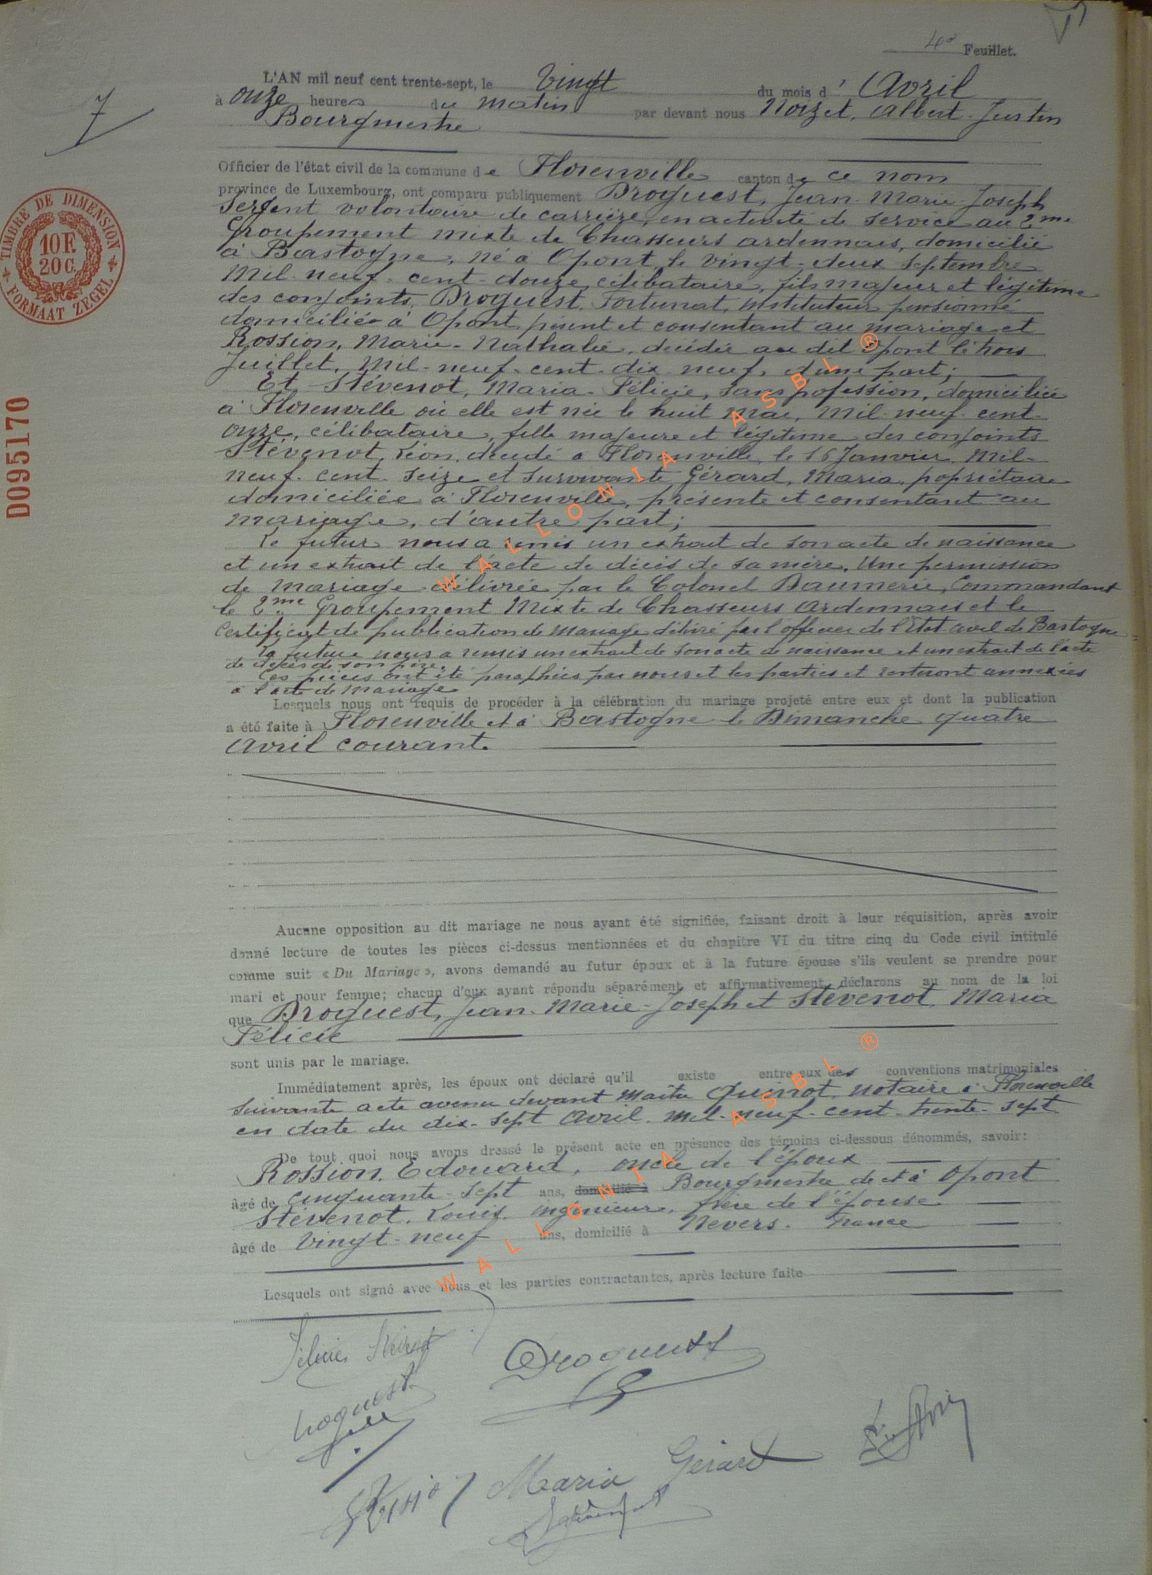 4e Feuillet.
L'AN mil neuf cent trente-sept, le Vingt du mois d' Avril
à onze heures du matin par devant nous Noizet, Albert-Justin
Bourgmestre
7
Officier de l'état civil de la commune de Florenville canton de ce nom
province de Luxembourg, ont comparu publiquement Droguest, Jean-Marie Joseph
Sergent volontaire de carrière, en activité de service au 2me
Groupement mixte de Chasseurs ardennais, domicilié
à Bastogne, né à Opont le vingt-deux Septembre
Mil-neuf-cent-douze, célibataire, fils majeur et légitime
des conjoints Droguest, Fortunat, instituteur pensionné
domicilié à Opont, présent et consentant au mariage et
Rossion, Marie-Nathalie, décédée au dit Opont le trois
Juillet, Mil-neuf-cent-dix neuf, d'une part;
Et Stévenot, Maria-Félicie, sans profession, domiciliée
à Florenville où elle est née le huit Mai, Mil-neuf-cent
onze, célibataire, fille majeure et légitime des conjoints
Stévenot, Léon, décédé à Florenville, le 16 Janvier Mil-
neuf-cent Seize et survivante Gérard, Maria, propriétaire
domiciliée à Florenville, présente et consentant au
mariage, d'autre part;
Le futur nous a remis un extrait de son acte de naissance
et un extrait de l'acte de décès de sa mère. Une permission
de mariage délivrée par le Colonel Baumerie, Commandant
le 2me Groupement Mixte de Chasseurs Ardennais et le
certificat de publication de mariage délivré par l'officier de l'Etat civil de Bastogne
La future nous a remis un extrait de son acte de naissance et un extrait de l'acte
de décès de son père.
Ces pièces ont été paraphées par nous et les parties et resteront annexées
à l'acte de Mariage
Lesquels nous ont requis de procéder à la célébration du mariage projeté entre eux et dont la publication
a été faite à Florenville et à Bastogne le Dimanche quatre
Avril courant.
Aucune opposition au dit mariage ne nous ayant été signifiée, faisant droit à leur réquisition, après avoir
donné lecture de toutes les pièces ci-dessus mentionnées et du chapitre VI du titre cinq du Code civil intitulé
comme suit « Du Mariage », avons demandé au futur époux et à la future épouse s'ils veulent se prendre pour
mari et pour femme; chacun d'eux ayant répondu séparément et affirmativement, déclarons au nom de la loi
que Droguest, Jean-Marie-Joseph et Stévenot Maria
Félicie
sont unis par le mariage.
Immédiatement après, les époux ont déclaré qu'il existe entre eux des conventions matrimoniales
suivante acte avenu devant Maître Guinot, notaire à Florenville
en date du dix-sept avril mil-neuf-cent-trente-sept
De tout quoi nous avons dressé le présent acte en présence des témoins ci-dessous dénommés, savoir:
Rossion, Edouard, oncle de l'époux
âgé de cinquante-sept ans, domicilié à Bourgmestre de et à Opont
Stévenot, Louis, ingénieur, frère de l'épouse
âgé de Vingt-neuf ans, domicilié à Nevers. France
Lesquels ont signé avec nous et les parties contractantes, après lecture faite
Félicie Stévenot
Droguest
Droguest
Maria Gérard
TIMBRE DE DIMENSION
10 F.
20 C.
FORMAAT ZEGEL
D095170
WALLONIA ASBL ®
WALLONIA ASBL ®